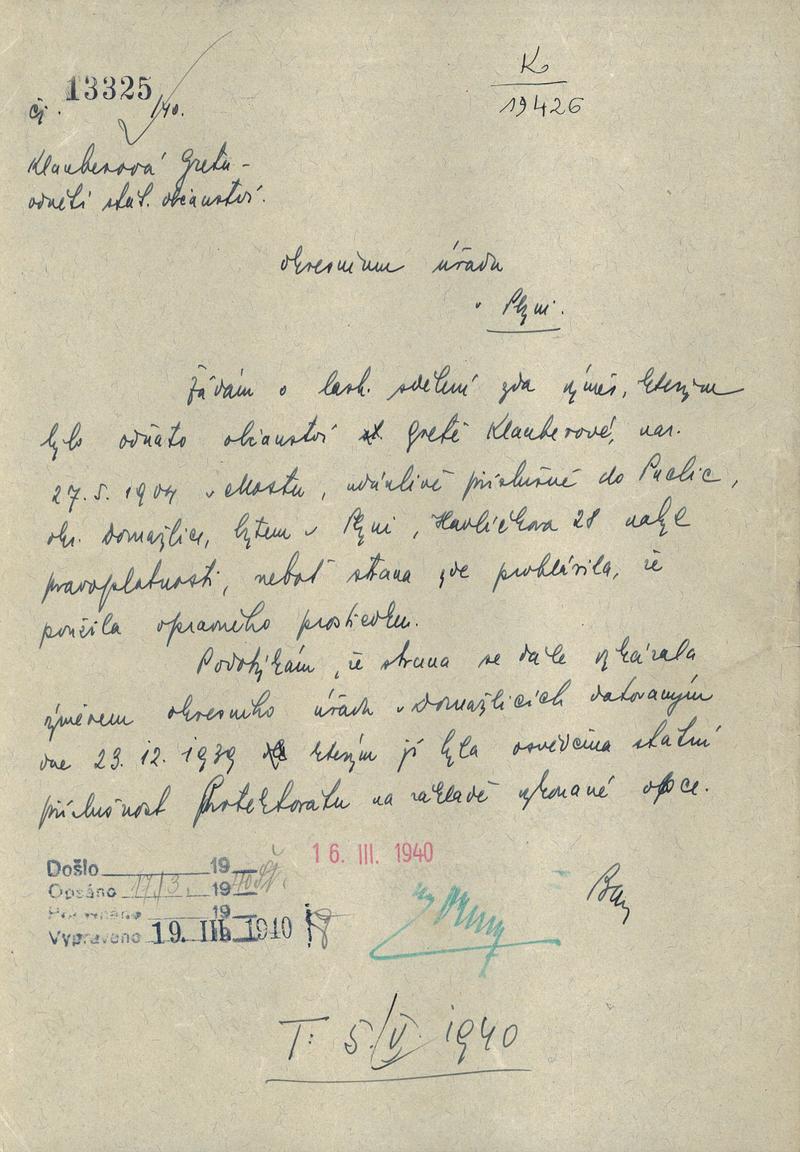 K
19426
13325
čj. /40.
Klauberová Greta –
odnětí stát. občanství.
okresnímu úřadu
v Plzni.
Žádám o lask. sdělení zda výměr, kterým
bylo odňato občanství Gretě Klauberové, nar.
27. 5. 1904 v Mostu, údánlivě příslušné do Puclic,
okr. Domažlice, bytem v Plzni, Havlíčkova 28 nabyl
pravoplatnosti, neboť strana zde prohlásila, že
použila opravného prostředku.
Podotýkám, že strana se dále vykázala
výměrem okresního úřadu v Domažlicích datovaným
dne 23. 12. 1939 kterým jí byla osvědčena státní
příslušnost Protektorátu na základě vykonané opce.
16. III. 1940
Došlo 19
Opsáno 17/3. 1940
Porovnáno 19
Vypraveno 19. III. 1940
T: 5./V. 1940